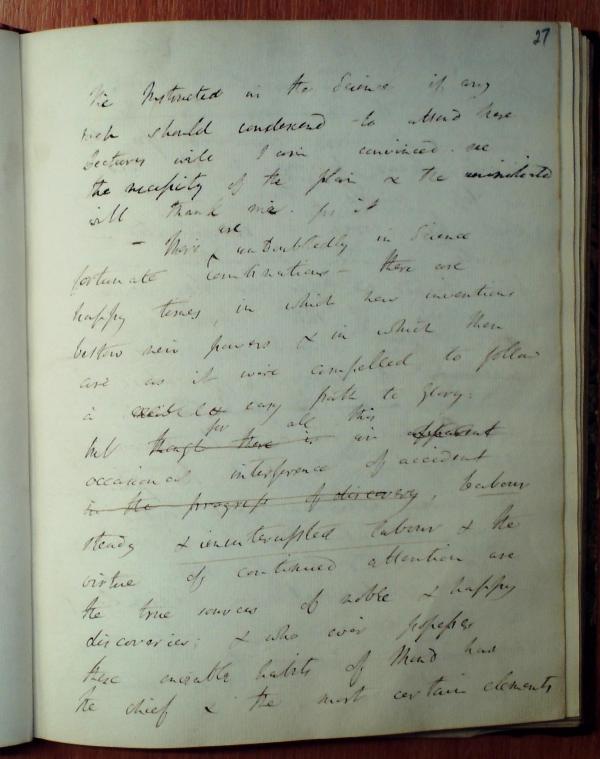 27
The Instructed in the Science if any
such should condescend to attend these
Lectures will I am convinced see
the necessity of the plan & the uninitiated
will thank me for it
— There are undoubtedly in Science
fortunate Combinations – there are
happy times, in which new inventions
bestow new powers & in which Men
are as it were compelled to follow
a easy path to glory:
but though there is for all this an apparent
occasional interference of accident
in the progress of discovery, labour
steady & uninterrupted labour & the
virtue of continued attention are
the true sources of noble & happy
discoveries; & who ever possesses
these enviable habits of Mind has
the chief & the most certain elements